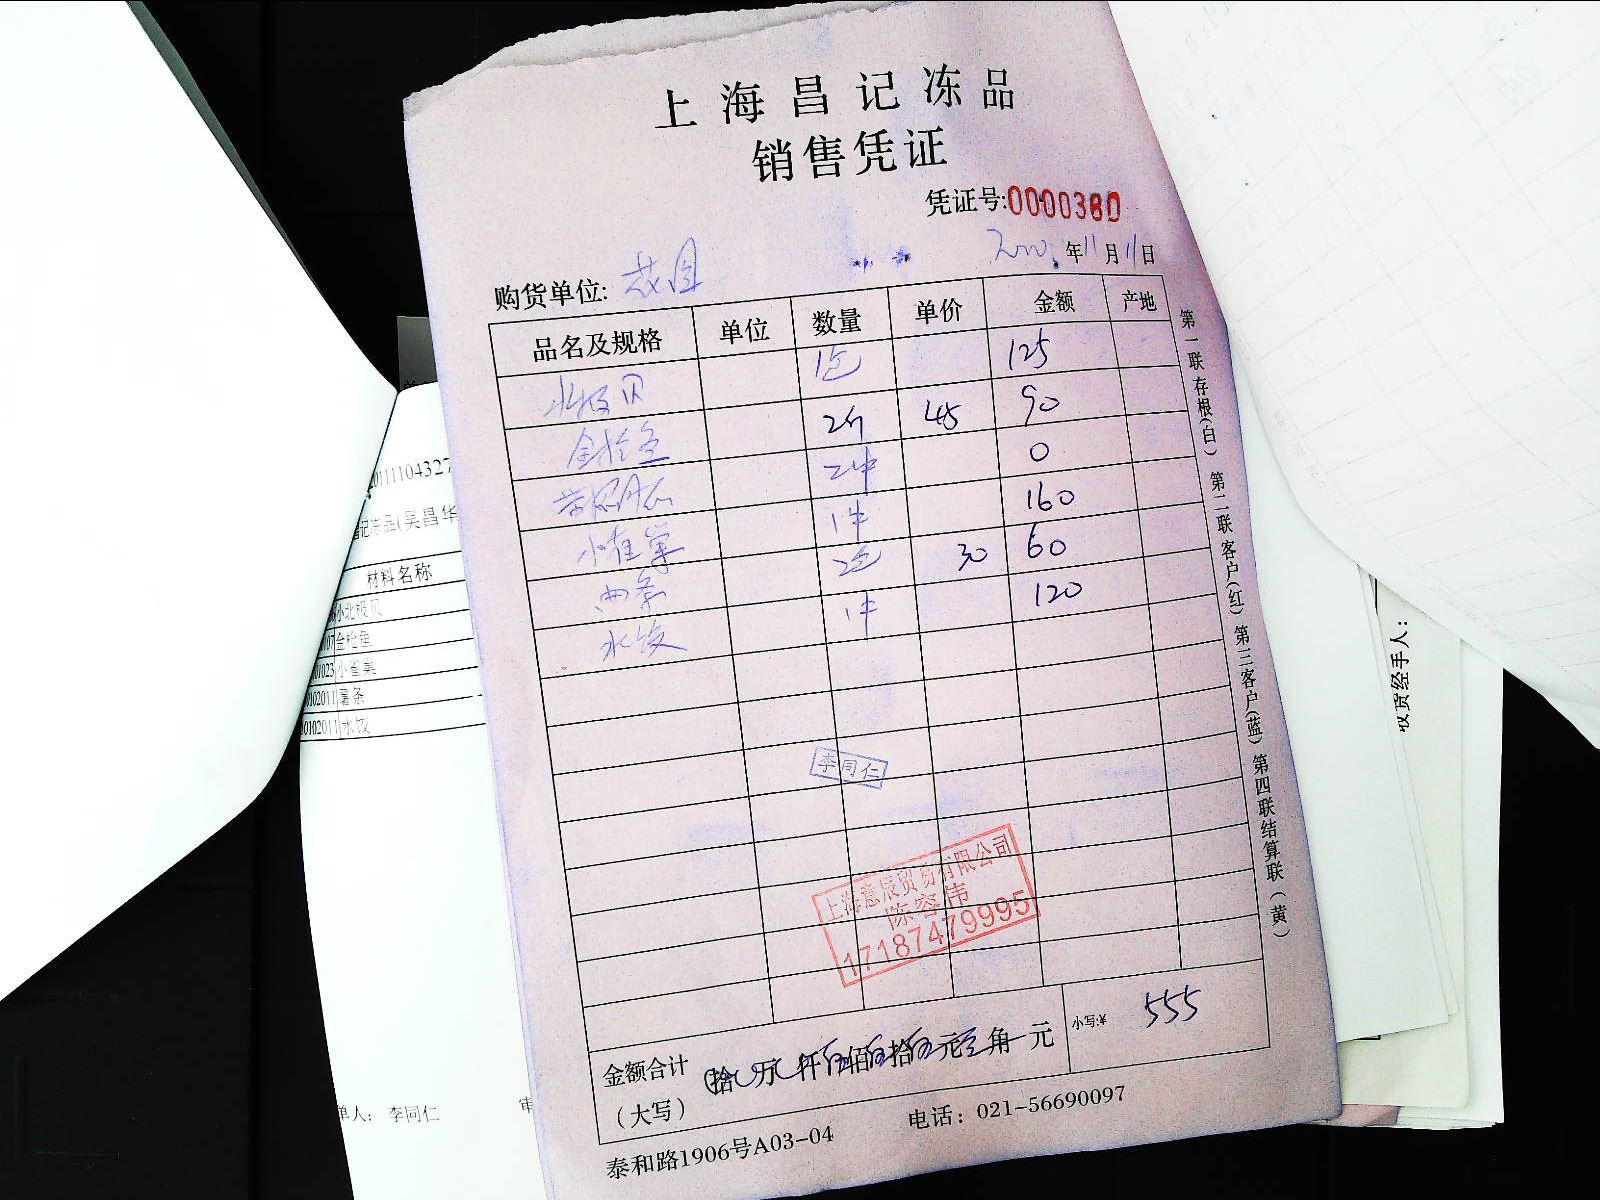 上海昌记冻品
销售凭证
凭证号:0000380
年11月11日
购货单位: 花园
品名及规格 单位 数量 单价 金额 产地
北极贝 1包 125
金枪鱼 2斤 45 90
2件 0
小雀巢 1件 160
薯条 2包 30 60
水饺 1件 120
李同仁
上海意辰贸易有限公司
陈容伟
17187479995
金额合计
(大写)
拾 万 仟 伍 佰 伍 拾 伍 元 角 元
小写:¥ 555
泰和路1906号A03-04 电话: 021-56690097
第一联存根(白) 第二联客户(红) 第三客户(蓝) 第四联结算联(黄)
0111104327
昌记冻品(吴昌华
材料名称
小北极贝
107 金枪鱼
01023 小雀巢
0102011 薯条
0102011 水饺
单人: 李同仁
审
收货经手人: